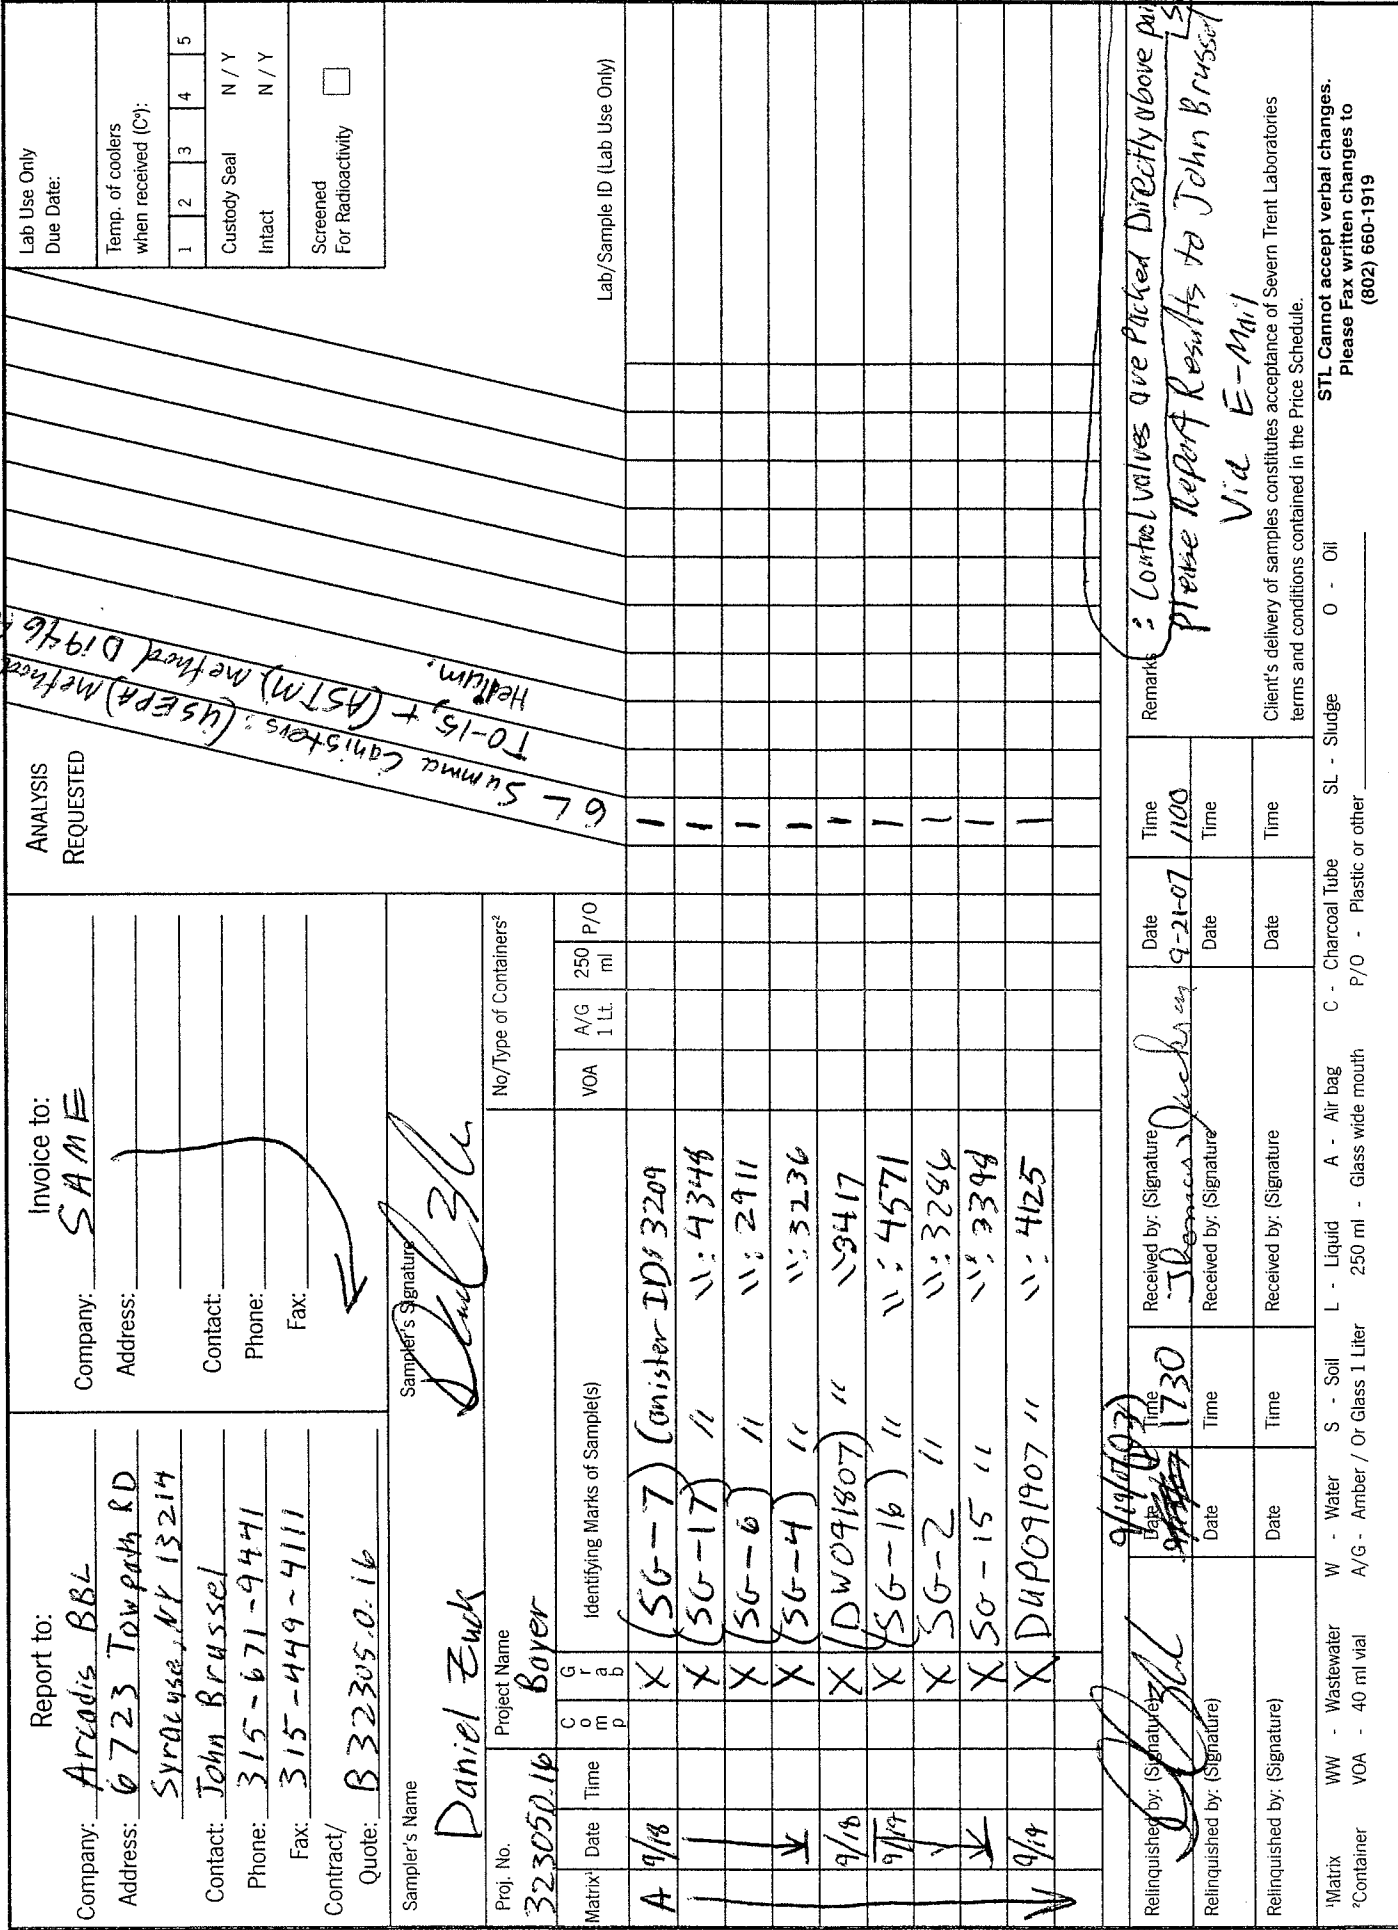 Report to:
Company: Arcadis BBL
Address: 6723 Towpath RD
Syracuse, NY 13214
Contact: John Brussel
Phone: 315-671-9441
Fax: 315-449-4111
Contract/
Quote: B32305.0.16
Invoice to:
Company: SAME
Address:
Contact:
Phone:
Fax:
ANALYSIS
REQUESTED
6L Summa Canisters: (USEPA) method
TO-15, + (ASTM) method D1946
Helium.
Lab Use Only
Due Date:
Temp. of coolers
when received (C°):
1 2 3 4 5
Custody Seal N / Y
Intact N / Y
Screened
For Radioactivity
Sampler's Name
Daniel Zuck
Sampler's Signature
Proj. No.
323050.16
Project Name
Boyer
No/Type of Containers²
Matrix¹ Date Time Comp Grab Identifying Marks of Sample(s) VOA A/G 1 Lt. 250 ml P/O
Lab/Sample ID (Lab Use Only)
A 9/18 X (SG-7) Canister ID: 3209 1
X (SG-17) " ": 4348 1
X (SG-6) " ": 2911 1
X (SG-4) " ": 3236 1
9/18 X (DW091807) " " 3417 1
9/19 X (SG-16) " ": 4571 1
X SG-2 " ": 3286 1
X SG-15 " ": 3398 1
9/19 X DUP091907 " ": 4125 1
Relinquished by: (Signature) Date Time 1730 Received by: (Signature Date 9-21-07 Time 1100
Relinquished by: (Signature) Date Time Received by: (Signature Date Time
Relinquished by: (Signature) Date Time Received by: (Signature Date Time
Remarks: Control valves are Packed Directly above
Please Report Results to John Brussel
Via E-Mail
Client's delivery of samples constitutes acceptance of Severn Trent Laboratories
terms and conditions contained in the Price Schedule.
¹Matrix WW - Wastewater W - Water S - Soil L - Liquid A - Air bag C - Charcoal Tube SL - Sludge O - Oil
²Container VOA - 40 ml vial A/G - Amber / Or Glass 1 Liter 250 ml - Glass wide mouth P/O - Plastic or other
STL Cannot accept verbal changes.
Please Fax written changes to
(802) 660-1919